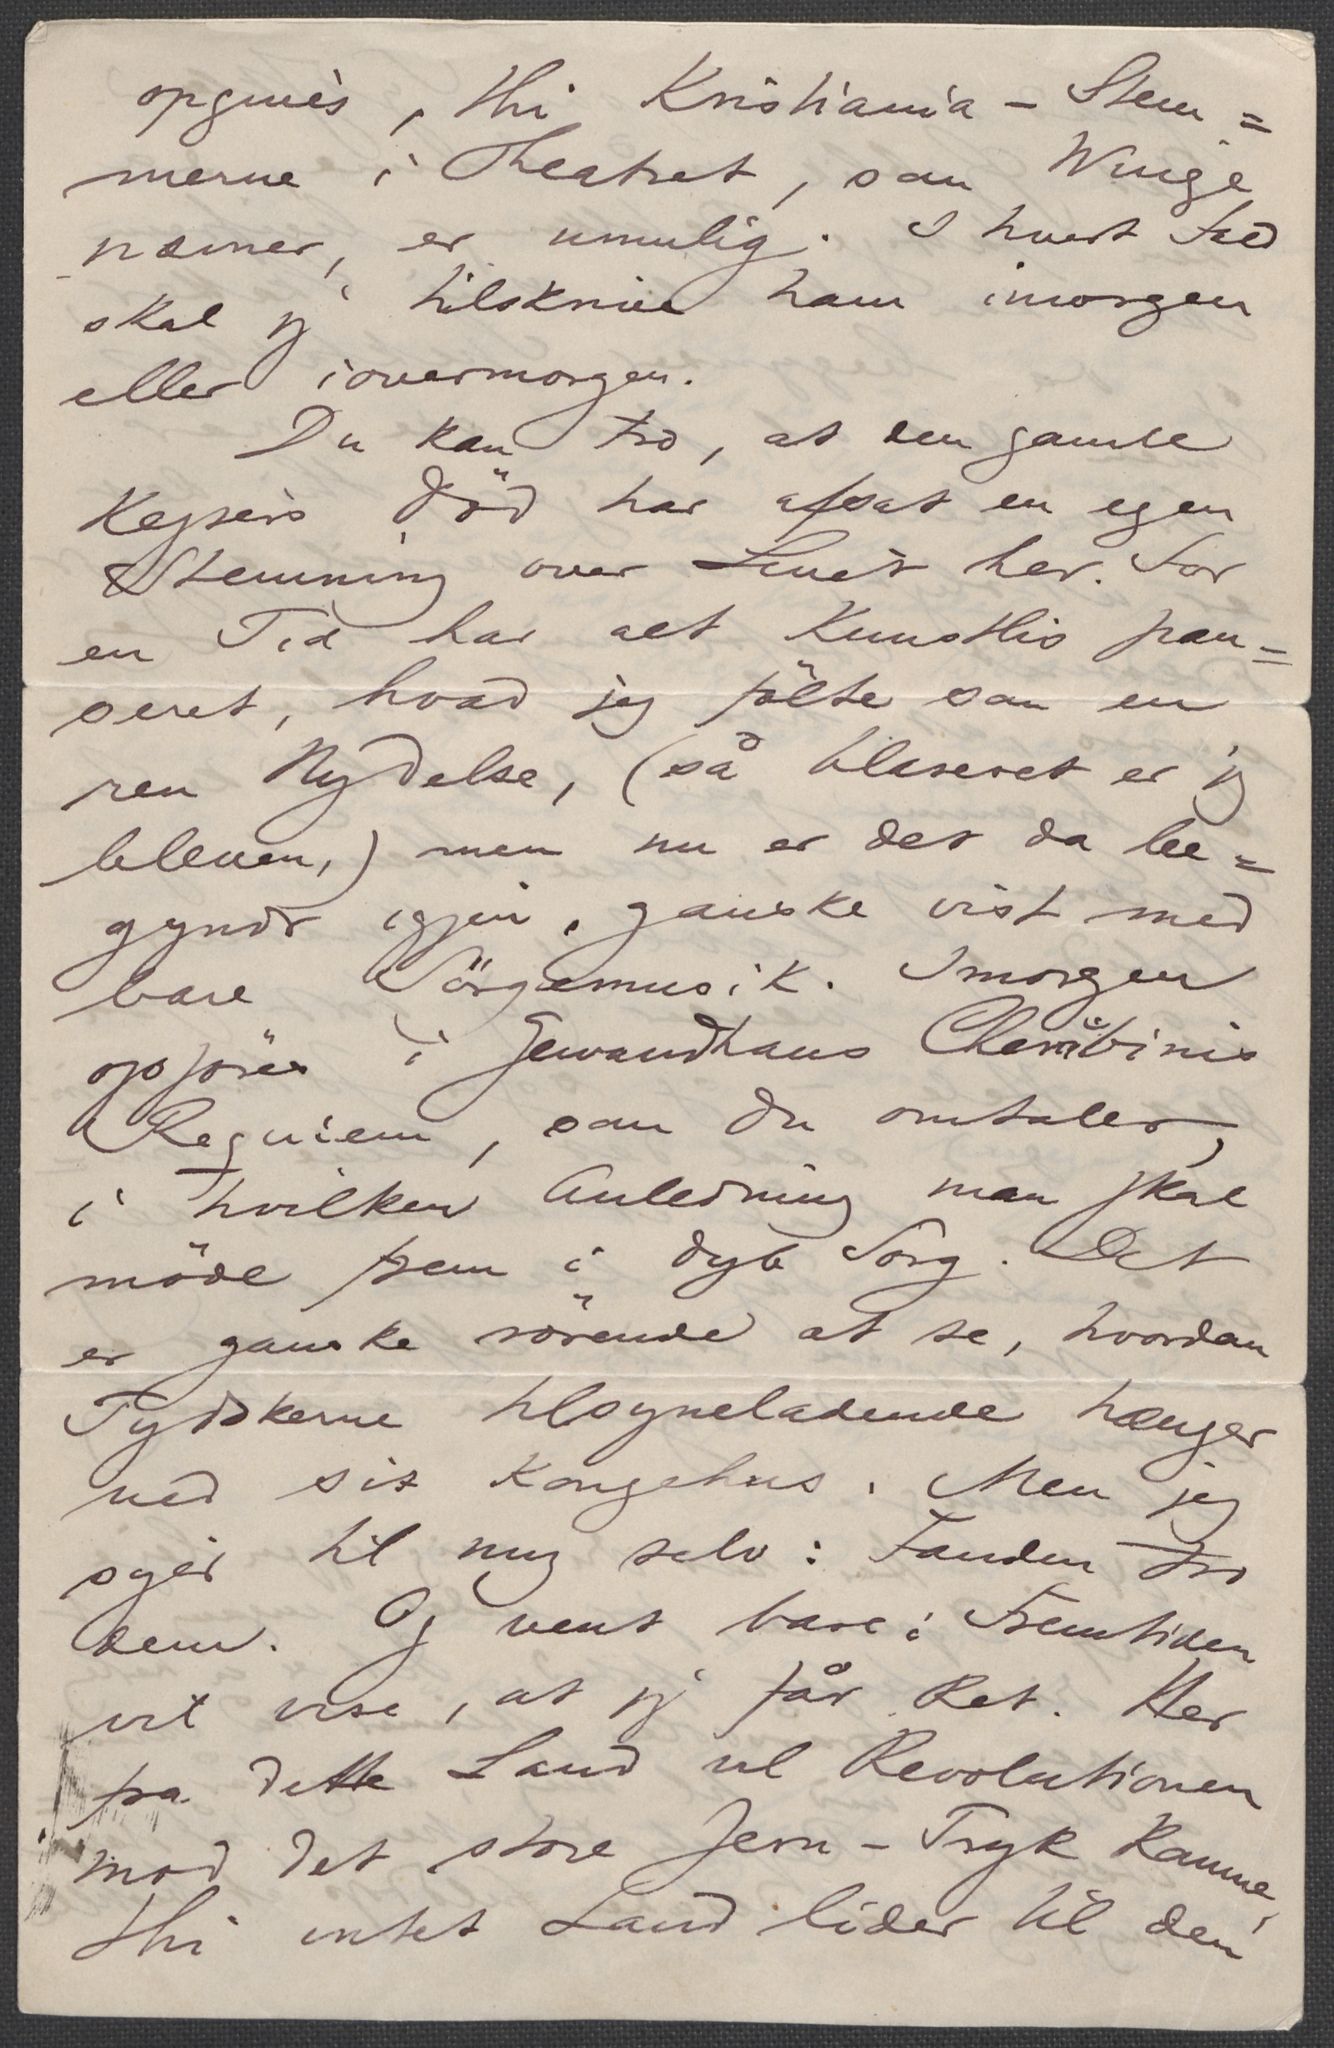 opgives, thi Kristiania-Stem=
merne i Theatret, som Winge
nævner, er umulig. I hvert Fald
skal jeg tilskrive ham imorgen
eller iovermorgen.
Du kan tro, at den gamle
Kejsers Död har afsat en egen
Stemning over Livet her. For
en Tid har alt Kunstliv pau=
seret, hvad jeg fölte som en
ren Nydelse, (så blaseret er jeg
bleven,) men nu er det da be=
gyndt igjen, ganske vist med
bare Sörgemusik. Imorgen
opföres i Gewandhaus Cherubinis
Requiem, som Du omtaler,
i hvilken Anledning man skal
möde frem i dyb Sorg. Det
er ganske rörende at se, hvordan
Tydskerne tilsyneladende hænger
ved sit Kongehus. Men jeg
siger til mig selv: Fanden tro
dem. Og vent bare: Fremtiden
vil vise, at jeg får Ret. Her
fra dette Land vil Revolutionen
mod det store Jern-Tryk komme,
thi intet Land lider til den